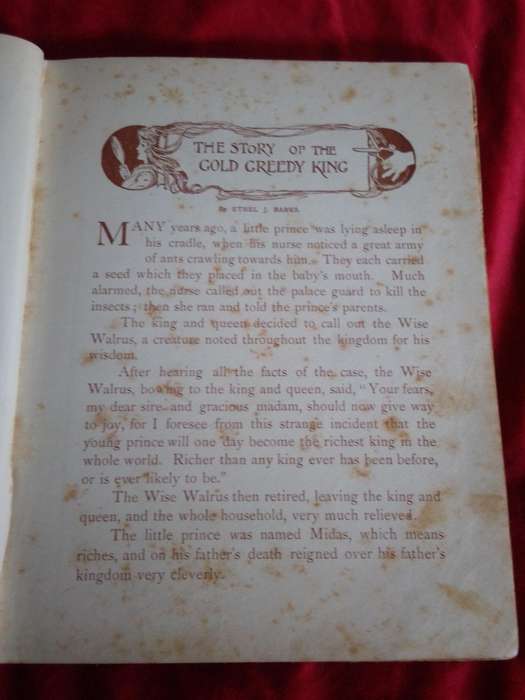 THE STORY OF THE
GOLD GREEDY KING
By ETHEL J. BANKS.
MANY years ago, a little prince was lying asleep in
his cradle, when his nurse noticed a great army
of ants crawling towards him. They each carried
a seed which they placed in the baby's mouth. Much
alarmed, the nurse called out the palace guard to kill the
insects; then she ran and told the prince's parents.
The king and queen decided to call out the Wise
Walrus, a creature noted throughout the kingdom for his
wisdom.
After hearing all the facts of the case, the Wise
Walrus, bowing to the king and queen, said, "Your fears,
my dear sire and gracious madam, should now give way
to joy, for I foresee from this strange incident that the
young prince will one day become the richest king in the
whole world. Richer than any king ever has been before,
or is ever likely to be."
The Wise Walrus then retired, leaving the king and
queen, and the whole household, very much relieved.
The little prince was named Midas, which means
riches, and on his father's death reigned over his father's
kingdom very cleverly.